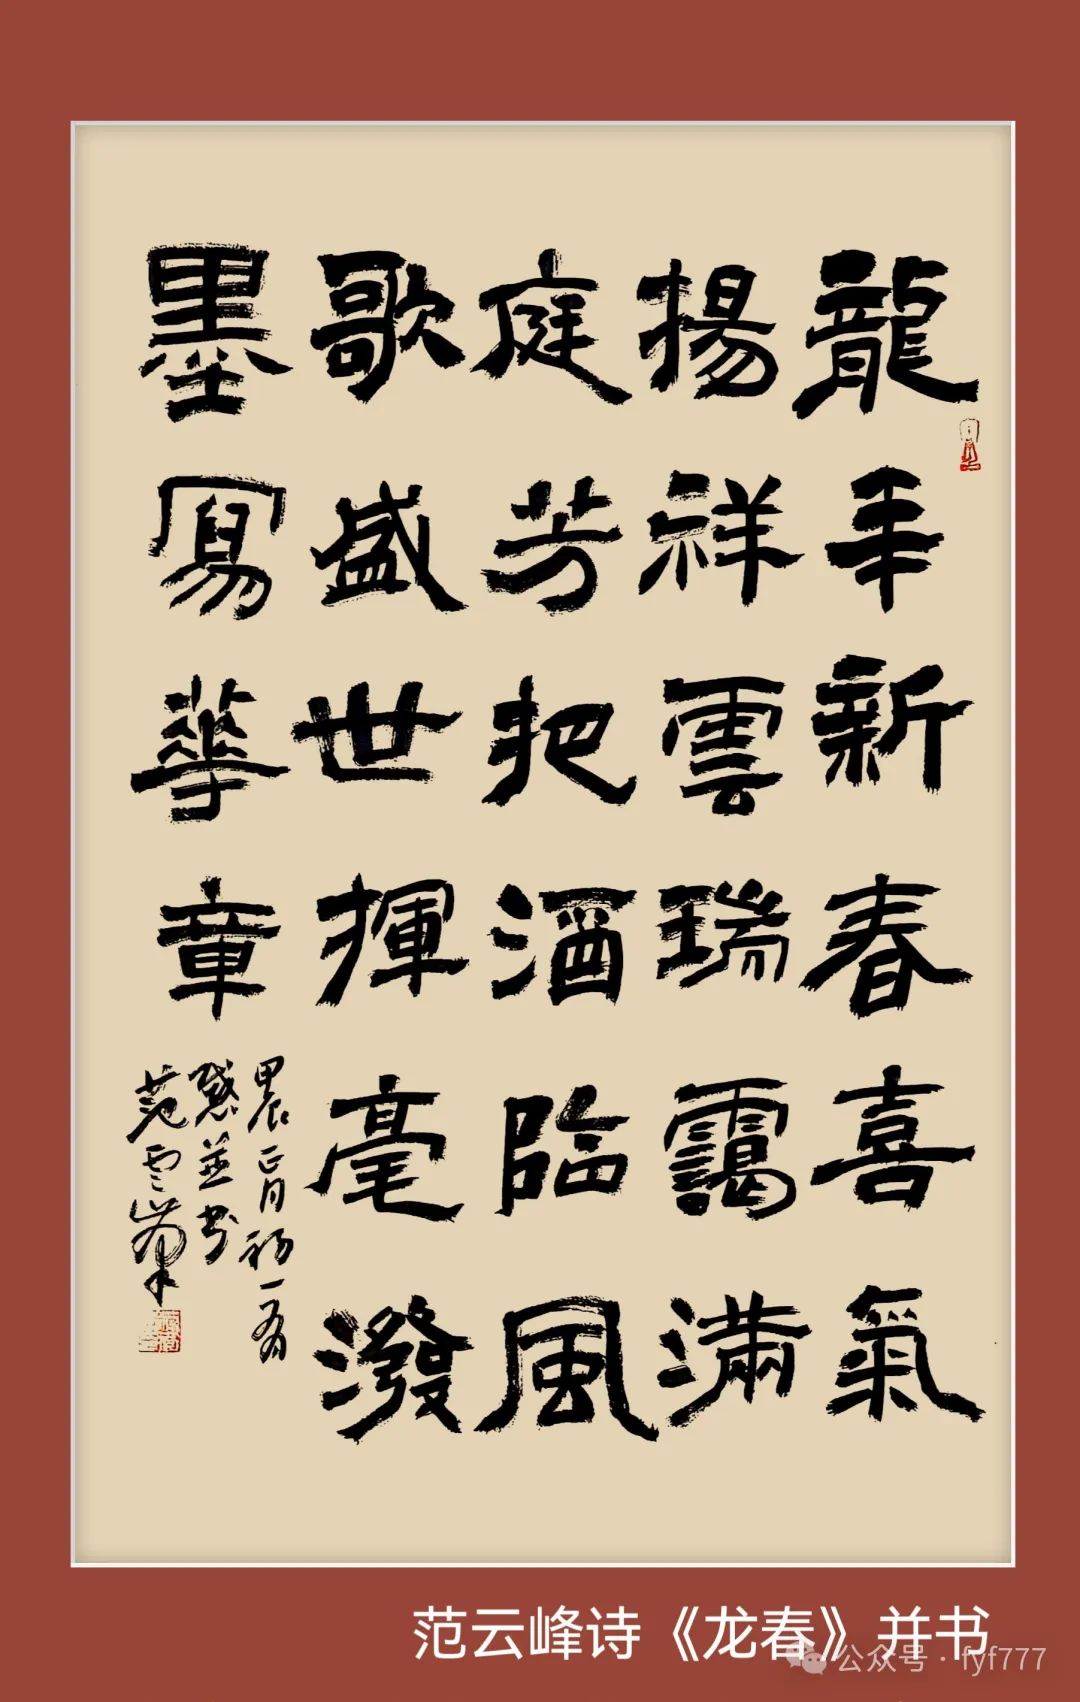 龍年新春喜氣
揚祥雲瑞靄滿
庭芳把酒臨風
歌盛世揮毫潑
墨寫華章
甲辰正月初一有
感並书
范云峰
范云峰诗《龙春》并书
公众号·fyf777